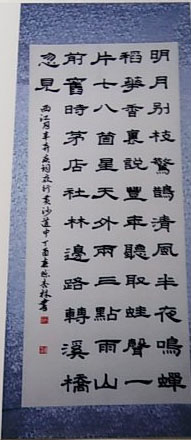 明月别枝驚鵲清風半夜鳴蟬
稻華香裏説豐年聽取蛙聲一
片七八箇星天外兩三點雨山
前舊時茅店社林邊路轉溪橋
忽見
西江月辛弃疾詞夜行黄沙道中丁酉 林書